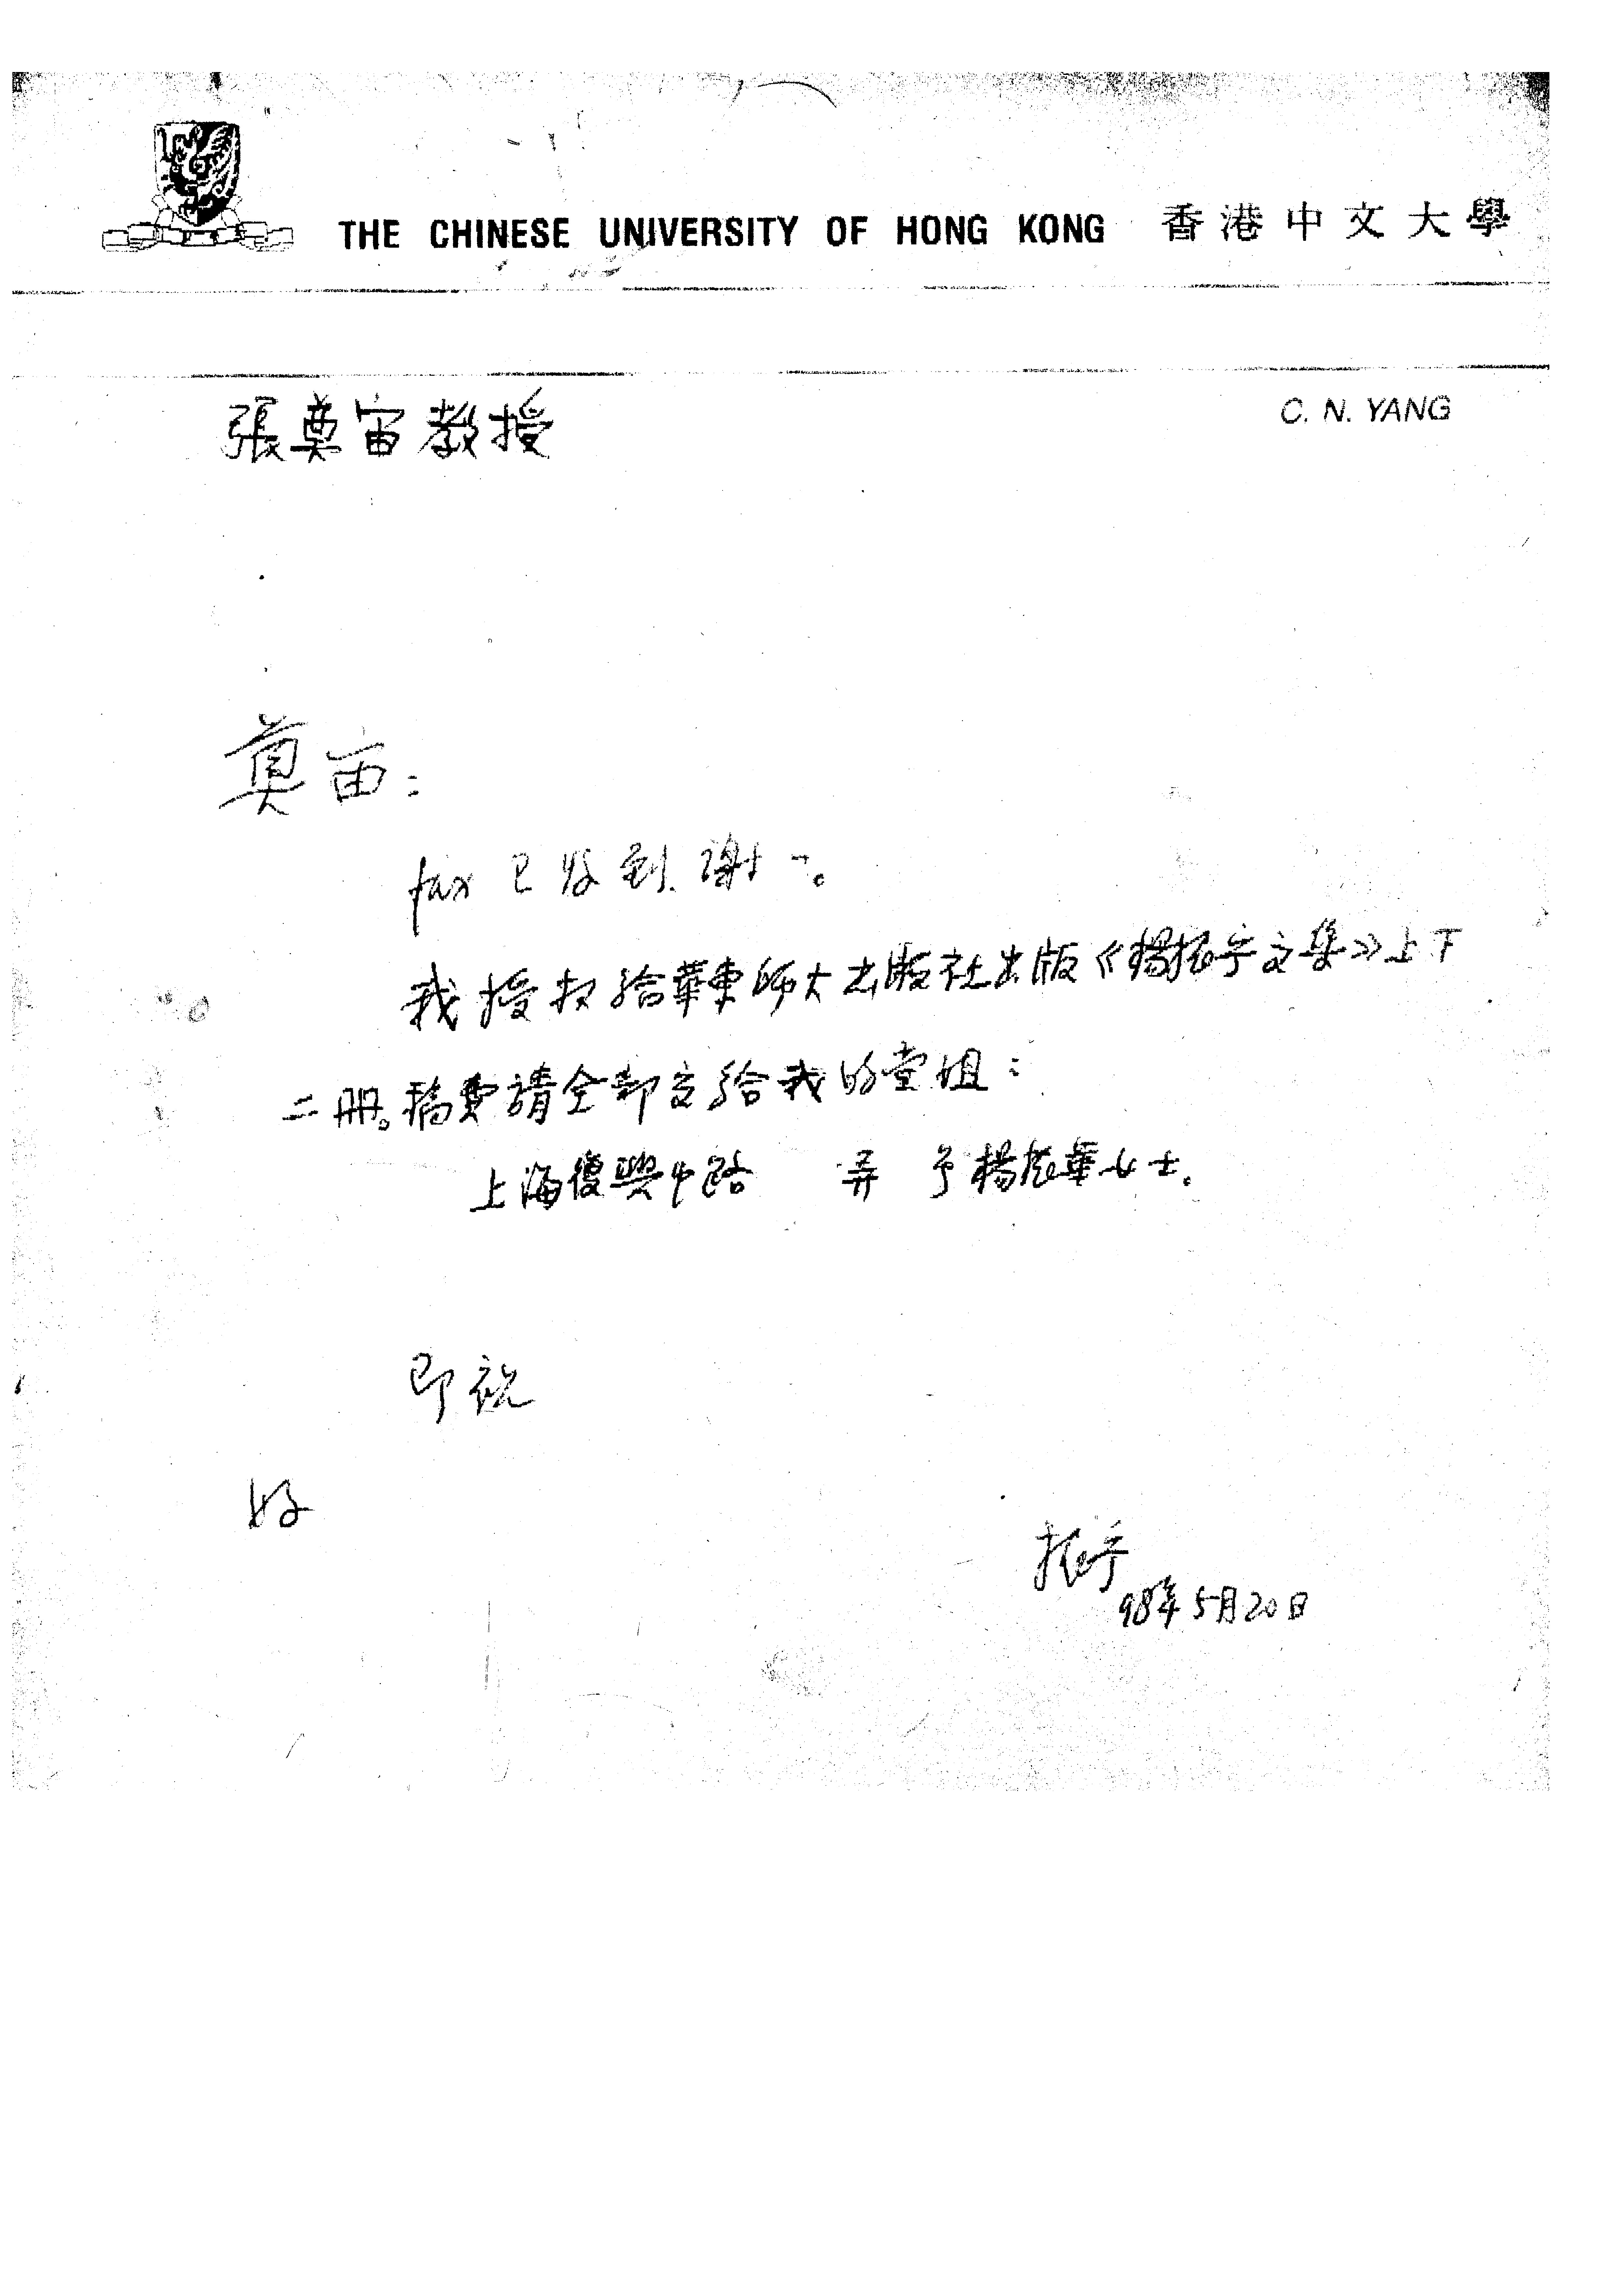 THE CHINESE UNIVERSITY OF HONG KONG 香港中文大學
C. N. YANG
張奠宙教授
奠宙：
fax 已收到，謝々。
我授权給華東師大出版社出版《楊振宁文集》上下
二册。稿費請全部交給我的堂姐：
上海復興中路 弄 号楊振華女士。
即祝
好
振宁
98年5月20日